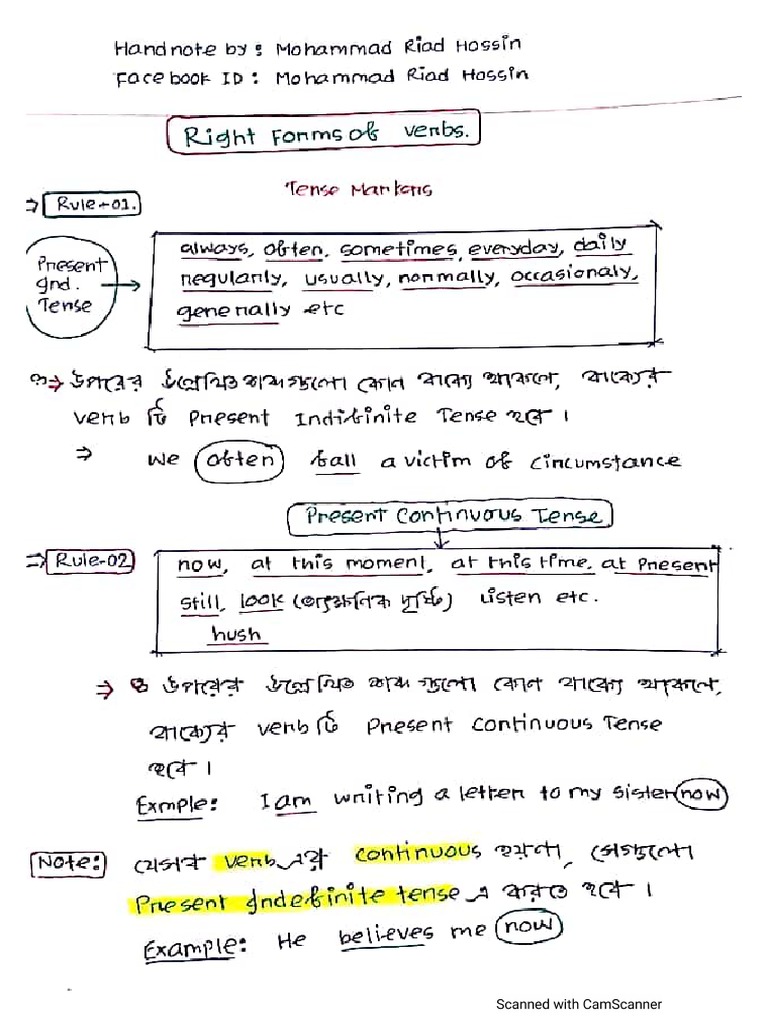 Handnote by: Mohammad Riad Hossin
Facebook ID: Mohammad Riad Hossin
Right Forms of verbs.
Tense Markers
⇒ Rule-01.
Present Ind. Tense →
always, often, sometimes, everyday, daily
regularly, usually, normally, occasionaly,
generally etc
⇒ উপরের উল্লেখিত শব্দগুলো কোন বাক্যে থাকলে, বাক্যের
verb টি Present Indifinite Tense হবে।
⇒ We often fall a victim of circumstance
Present Continuous Tense
⇒ Rule-02
now, at this moment, at this time, at present
still, look (তাৎক্ষনিক দৃষ্টি) Listen etc.
hush
⇒ উপরের উল্লেখিত শব্দ গুলো কোন বাক্যে থাকলে,
বাক্যের verb টি Present Continuous Tense
হবে।
Exmple: I am writing a letter to my sister now
Note: যেসব verb এর continuous হয়না, সেগুলো
Present Indefinite tense এ করতে হবে।
Example: He believes me now
Scanned with CamScanner